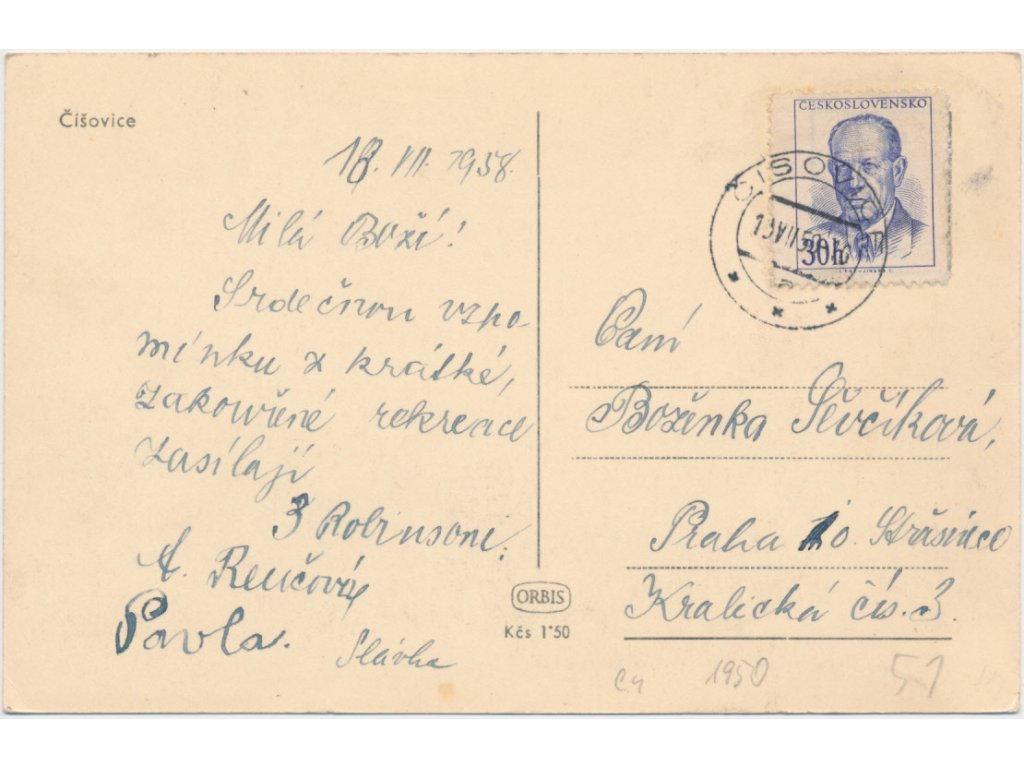 Číšovice
18. VII. 1958.
Milá Boží!
Srdečnou vzpo-
mínku z krátké,
zakouřené rekreace
zasílají
3 Robinsoni:
A. Renčová
Pavla.
Slávka
ORBIS
Kčs 1·50
ČESKOSLOVENSKO
30h
ČISOVICE
13.VII.58
Paní
Boženka Ševčíková,
Praha 10. Strašnice
Kralická čís. 3.
1950
51